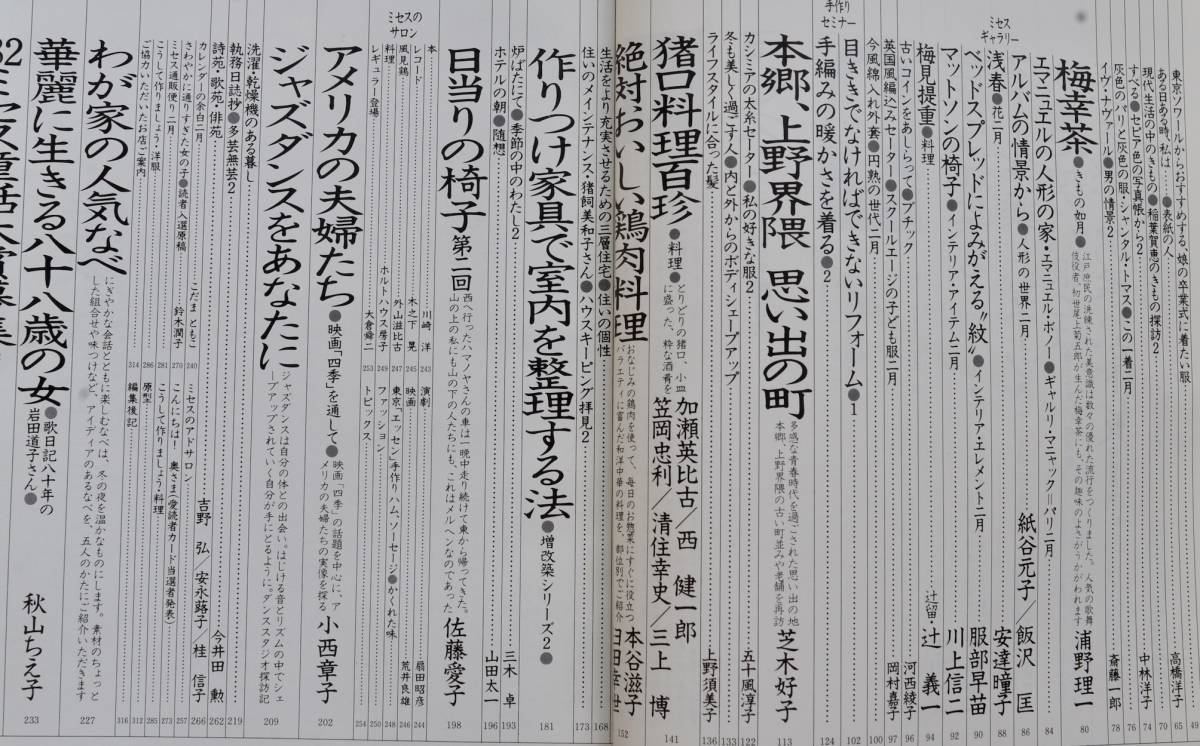 東京ソワールからおすすめする、娘の卒業式に着たい服 49
ある日ある時、私は●表紙の人 高橋洋子 65
現代生活の中のきもの●稲葉賀恵のきもの探訪2 70
すべる●セピア色の写真帳から2 中林洋子 74
灰色のパリと灰色の服・シャンタル・トマス●この一着二月 76
イヴ・ナヴァール●男の情景2 斎藤一郎 78
梅幸茶●きもの如月●
江戸庶民の洗練された美意識は数々の優れた流行をつくりました。人気の歌舞
伎役者、初世尾上菊五郎が生んだ梅幸茶も、その趣味のよさがうかがわれます
浦野理一 80
エマニュエルの人形の家・エマニュエル・ボノー●ギャルリ・マニャック パリ二月 84
ミセス
ギャラリー
アルバムの情景から●人形の世界二月 紙谷元子/飯沢 匡 86
浅春●花二月 安達瞳子 88
ベッドスプレッドによみがえる"紋"●インテリア・エレメント二月 服部早苗 90
マットソンの椅子●インテリア・アイテム二月 川上信二 92
梅見提重●料理 辻留・辻 義一 94
古いコインをあしらって●ブチック 河西綾子 96
英国風編込みセーター●スクールエージの子ども服二月 岡村嘉子 97
今風綿入れ外套●円熟の世代二月 100
目ききでなければできないリフォーム●1 102
手作り
セミナー
手編みの暖かさを着る●2 124
本郷、上野界隈 思い出の町
多感な青春時代を過ごされた思い出の地
本郷、上野界隈の古い町並みや老舗を再訪
芝木好子 113
カシミアの太糸セーター●私の好きな服2 五十嵐淳子 122
冬も美しく過ごす人●内と外からのボディシェープアップ 133
ライフスタイルに合った髪 上野須美子 136
猪口料理百珍●料理●
とりどりの猪口、小皿
に盛った、粋な酒肴を
加瀬英比古/西 健一郎
笠岡忠利/清住幸史/三上 博 141
絶対おいしい鶏肉料理
おなじみの鶏肉を使って、毎日のお惣菜にすぐに役立つ
バラエティに富んだ和洋中華の料理を、部位別でご紹介
本谷滋子
152
生活をより充実させるための三層住宅●住いの個性 168
住いのメインテナンス・猪飼美和子さん●ハウスキーピング拝見2 173
作りつけ家具で室内を整理する法●増改築シリーズ2● 181
炉ばたにて●季節の中のわたし2 三木 卓 193
ホテルの朝●随想 山田太一 196
日当りの椅子 第二回
西へ行ったハマノヤさんの車は一晩中走り続けて東から帰ってきた。
山の上の私にも山の下の人たちにも、これはメルヘンなのであった
佐藤愛子 198
ミセスの
サロン
本 川崎 洋 243
レコード 木之下 晃 245
風見鶏 外山滋比古 247
料理 ホルトハウス房子 249
レギュラー登場 大倉舜二 253
演劇 扇田昭彦 244
映画 荒井良雄 246
東京「エッセン」手作りハム、ソーセージ●かくれた味 248
ファッション 250
トピックス 254
アメリカの夫婦たち●映画「四季」を通して●
映画「四季」の話題を中心に、ア
メリカの夫婦たちの実像を探る
小西章子 202
ジャズダンスをあなたに
ジャズダンスは自分の体との出会い。はじける音とリズムの中でシェ
ープアップされていく自分が手にとるように。ダンススタジオ探訪記
209
洗濯・乾燥機のある暮し 219
執務日誌抄●多芸無芸2 今井田 勲 262
詩苑・歌苑・俳苑 吉野 弘/安永蕗子/桂 信子 266
カレンダーの余白二月 こだま ともこ 240
さわやかに通りすぎた女の子●読者入選原稿 鈴木潤子 270
ミセス通販便り 二月 281
こうして作りましょう・洋服 286
ご協力いただいたお店ご案内 314
ミセスのアドサロン 257
こんにちは! 奥さま(愛読者カード当選者発表) 273
こうして作りましょう・料理 285
原型 312
編集後記 316
わが家の人気なべ
にぎやかな会話とともに楽しむなべは、冬の夜を温かなものにします。素材のちょっと
した組合せや味つけなど、アイディアのあるなべを、五人のかたにご紹介いただきます
227
華麗に生きる八十八歳の女●歌日記八十年の
岩田道子さん●
秋山ちえ子 233